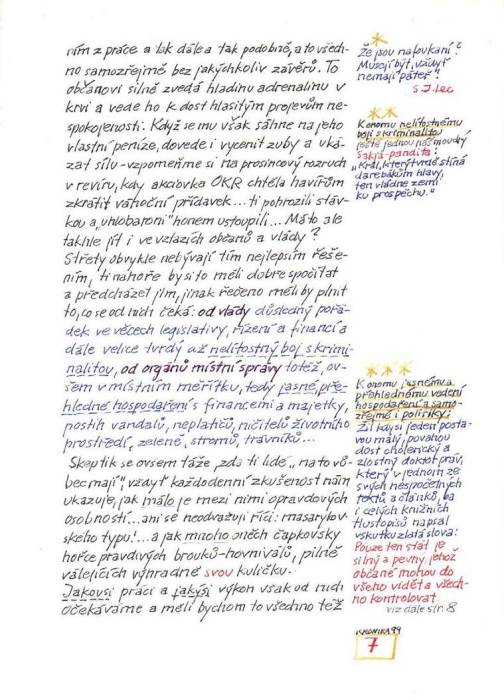 ním z práce a tak dále a tak podobně, a to všech-
no samozřejmě bez jakýchkoliv závěrů. To
občanovi silně zvedá hladinu adrenalinu v
krvi a vede ho k dost hlasitým projevům ne-
spokojenosti. Když se mu však sáhne na jeho
vlastní peníze, dovede i vycenit zuby a uká-
zat sílu - vzpomeňme si na prosincový rozruch
v revíru, kdy akciovka OKR chtěla havířům
zkrátit vánoční přídavek... ti pohrozili stáv-
kou a „uhlobaroni" honem ustoupili... Má to ale
takhle jít i ve vztazích občanů a vlády?
Střety obvykle nebývají tím nejlepším řeše-
ním, ti nahoře by si to měli dobře spočítat
a předcházet jim, jinak řečeno měli by plnit
to, co se od nich čeká: od vlády důsledný pořá-
dek ve věcech legislativy, řízení a financí a
dále velice tvrdý až nelítostný boj s krimi-
nalitou, od orgánů místní správy totéž, ov-
šem v místním měřítku, tedy jasné, pře-
hledné hospodaření s financemi a majetky,
postih vandalů, neplatičů, ničitelů životního
prostředí, zeleně, stromů, trávníků...
Skeptik se ovšem táže, zda ti lidé „na to vů-
bec mají", vždyť každodenní zkušenost nám
ukazuje, jak málo je mezi nimi opravdových
osobností... ani se neodvažuji říci: masarykov-
ského typu!... a jak mnoho oněch čapkovsky
hořce pravdivých brouků-hovniválů, pilně
válejících výhradně svou kuličku..
Jakousi práci a jakýsi výkon však od nich
očekáváme a měli bychom to všechno též
*
Že jsou nafoukaní?
Musejí být, vždyť
nemají páteř!
S J. Lec
**
K onomu nelítostnému
boji s kriminalitou
ještě jednou náš moudrý
Sakja-pandita:
„Král, který tvrdě stíná
darebákům hlavy,
ten vládne zemi
ku prospěchu."
***
K onomu jasnému a
přehlednému vedení
hospodaření a samo-
zřejmě i politiky:
Žil kdysi jeden posta-
vou malý, povahou
dost cholerický a
zlostný doktor práv,
který v jednom ze
svých nesčetných
textů a článků, ba
i celých knižních
tlustopisů napsal
vskutku zlatá slova:
Pouze ten stát je
silný a pevný, jehož
občané mohou do
všeho vidět a všech-
no kontrolovat.
viz dále str. 8
7